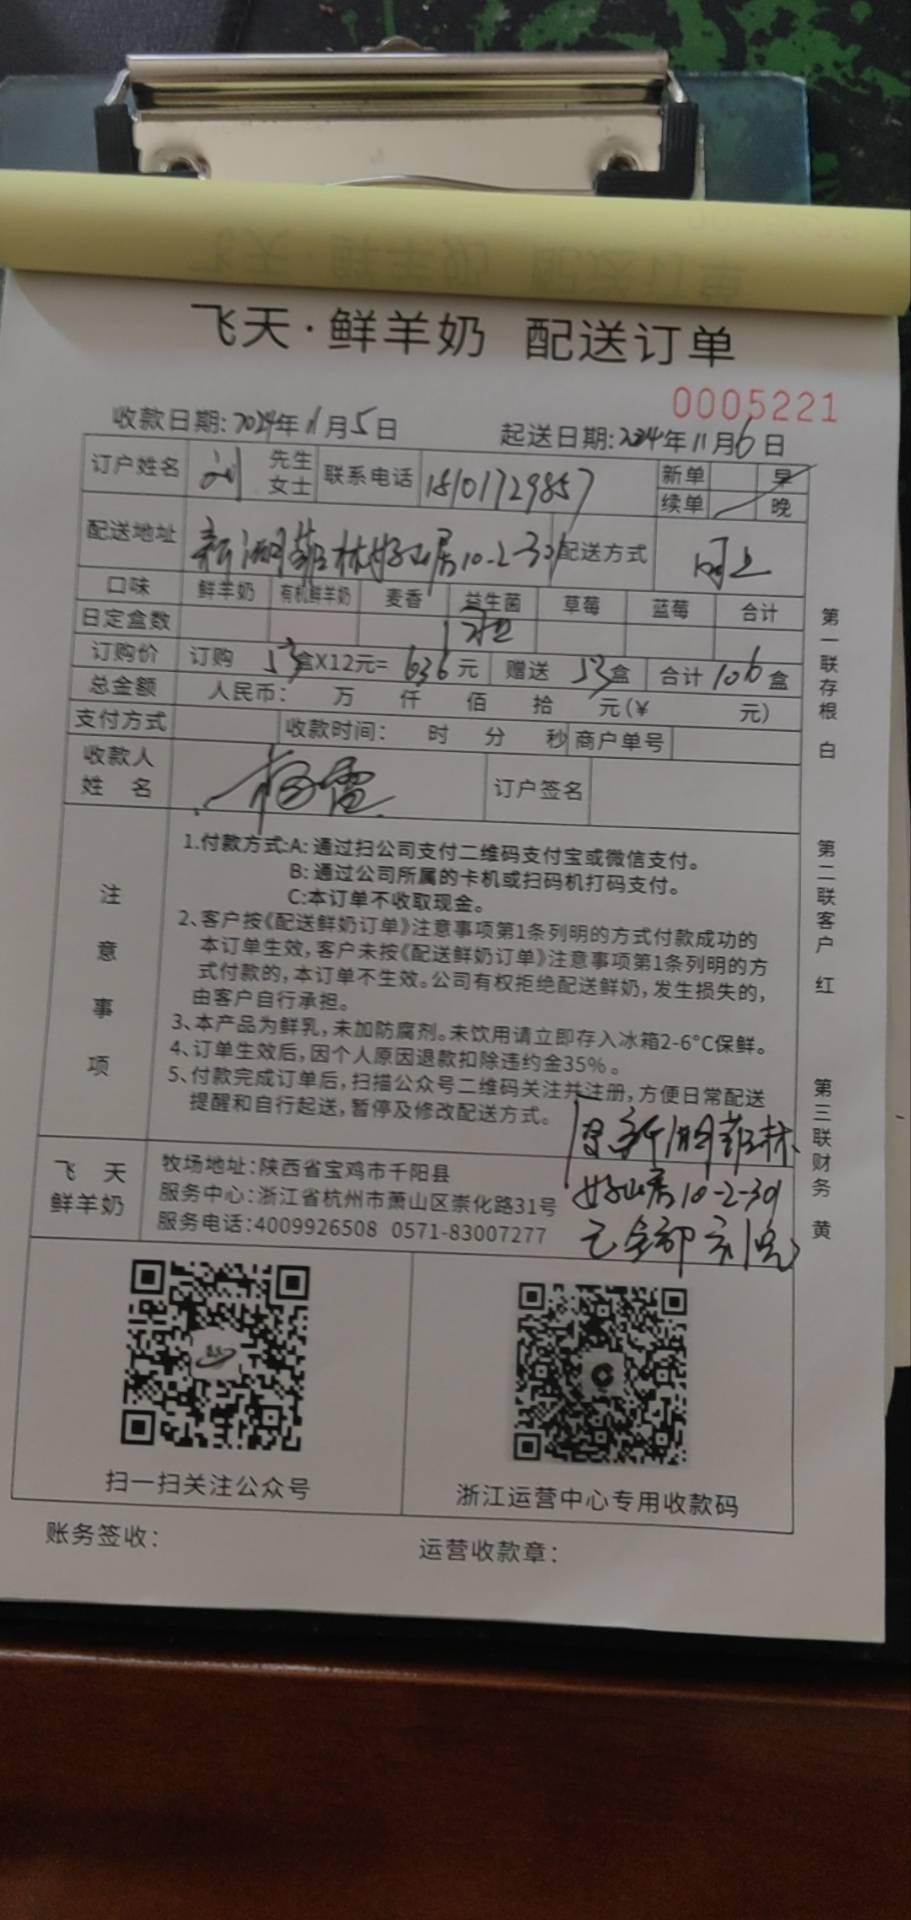 飞天·鲜羊奶 配送订单
0005221
收款日期: 2024年11月5日
起送日期: 2024年11月6日
订户姓名 刘 先生 女士 联系电话 18101729857 新单 早
续单 晚
配送地址 新湖菲林好山居10-2-301 配送方式
口味 鲜羊奶 有机鲜羊奶 麦香 益生菌 草莓 蓝莓 合计
日定盒数
订购价 订购 53盒X12元=636元 赠送 53盒 合计106盒
总金额 人民币: 万 仟 佰 拾 元(¥ 元)
支付方式 收款时间: 时 分 秒 商户单号
收款人
姓 名 杨雷 订户签名
注意事项
1.付款方式:A: 通过扫公司支付二维码支付宝或微信支付。
B: 通过公司所属的卡机或扫码机打码支付。
C:本订单不收取现金。
2、客户按《配送鲜奶订单》注意事项第1条列明的方式付款成功的
本订单生效,客户未按《配送鲜奶订单》注意事项第1条列明的方
式付款的,本订单不生效。公司有权拒绝配送鲜奶,发生损失的,
由客户自行承担。
3、本产品为鲜乳,未加防腐剂。未饮用请立即存入冰箱2-6°C保鲜。
4、订单生效后,因个人原因退款扣除违约金35%。
5、付款完成订单后,扫描公众号二维码关注并注册,方便日常配送
提醒和自行起送,暂停及修改配送方式。
新湖菲林
好山居10-2-301
已全部
飞 天
鲜羊奶
牧场地址:陕西省宝鸡市千阳县
服务中心:浙江省杭州市萧山区崇化路31号
服务电话:4009926508 0571-83007277
扫一扫关注公众号
浙江运营中心专用收款码
账务签收:
运营收款章:
第一联存根 白
第二联客户 红
第三联财务 黄